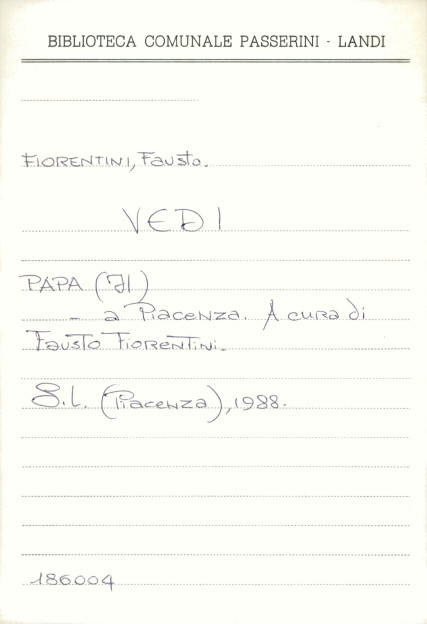 BIBLIOTECA COMUNALE PASSERINI - LANDI
FIORENTINI, Fausto.
VEDI
PAPA (Il)
- a Piacenza. A cura di
Fausto Fiorentini.
S.l. (Piacenza), 1988.
186004